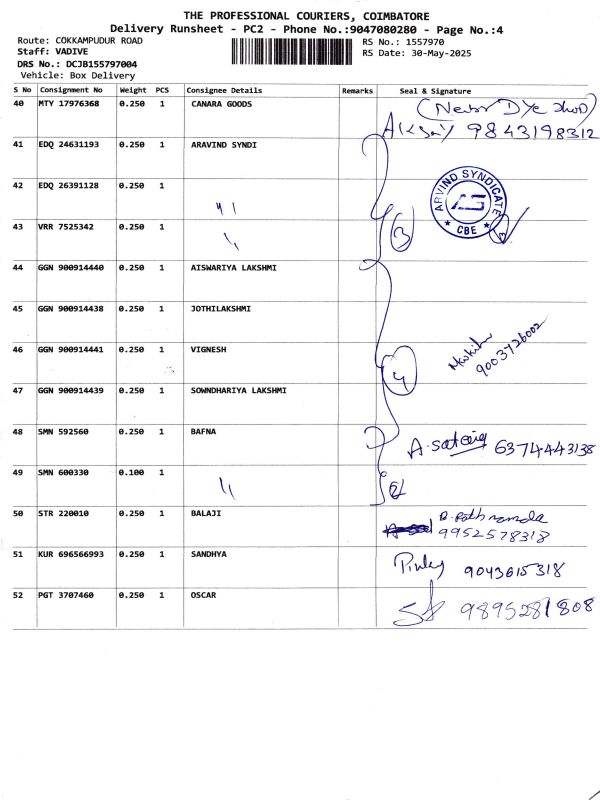 THE PROFESSIONAL COURIERS, COIMBATORE
Delivery Runsheet - PC2 - Phone No.:9047080280 - Page No.:4
Route: COKKAMPUDUR ROAD
Staff: VADIVE
DRS No.: DCJB155797004
Vehicle: Box Delivery
RS No.: 1557970
RS Date: 30-May-2025
S No Consignment No Weight PCS Consignee Details Remarks Seal & Signature
40 MTY 17976368 0.250 1 CANARA GOODS
9843198312
41 EDQ 24631193 0.250 1 ARAVIND SYNDI
42 EDQ 26391128 0.250 1
ARVIND SYNDICATE
AS
CBE
43 VRR 7525342 0.250 1
3
44 GGN 900914440 0.250 1 AISWARIYA LAKSHMI
45 GGN 900914438 0.250 1 JOTHILAKSHMI
46 GGN 900914441 0.250 1 VIGNESH
9003726002
4
47 GGN 900914439 0.250 1 SOWNDHARIYA LAKSHMI
48 SMN 592560 0.250 1 BAFNA
6374443138
49 SMN 600330 0.100 1
2
50 STR 220010 0.250 1 BALAJI
9952578318
51 KUR 696566993 0.250 1 SANDHYA
9043615318
52 PGT 3707460 0.250 1 OSCAR
9895281808